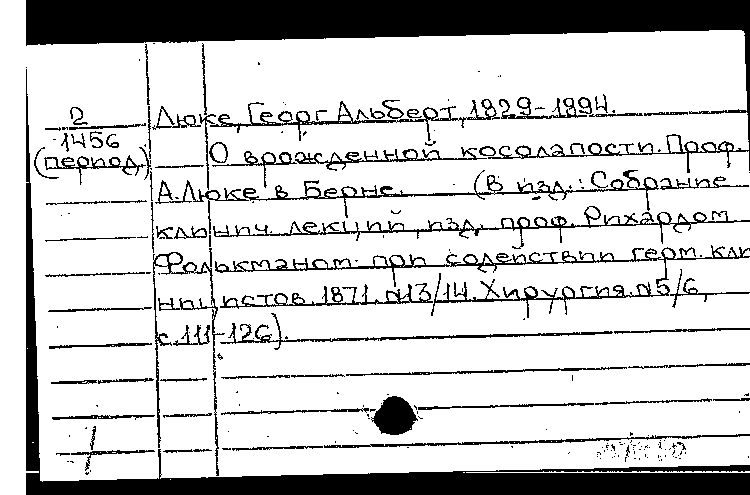 2
1456
(период.)
Люке, Георг Альберт, 1829-1894.
О врожденной косолапости. Проф.
А. Люке в Берне. (В изд.: Собрание
клинич. лекций, изд. проф. Рихардом
Фолькманом при содействии герм. кли
ницистов. 1871. №13/14. Хирургия. №5/6,
с. 111-126).